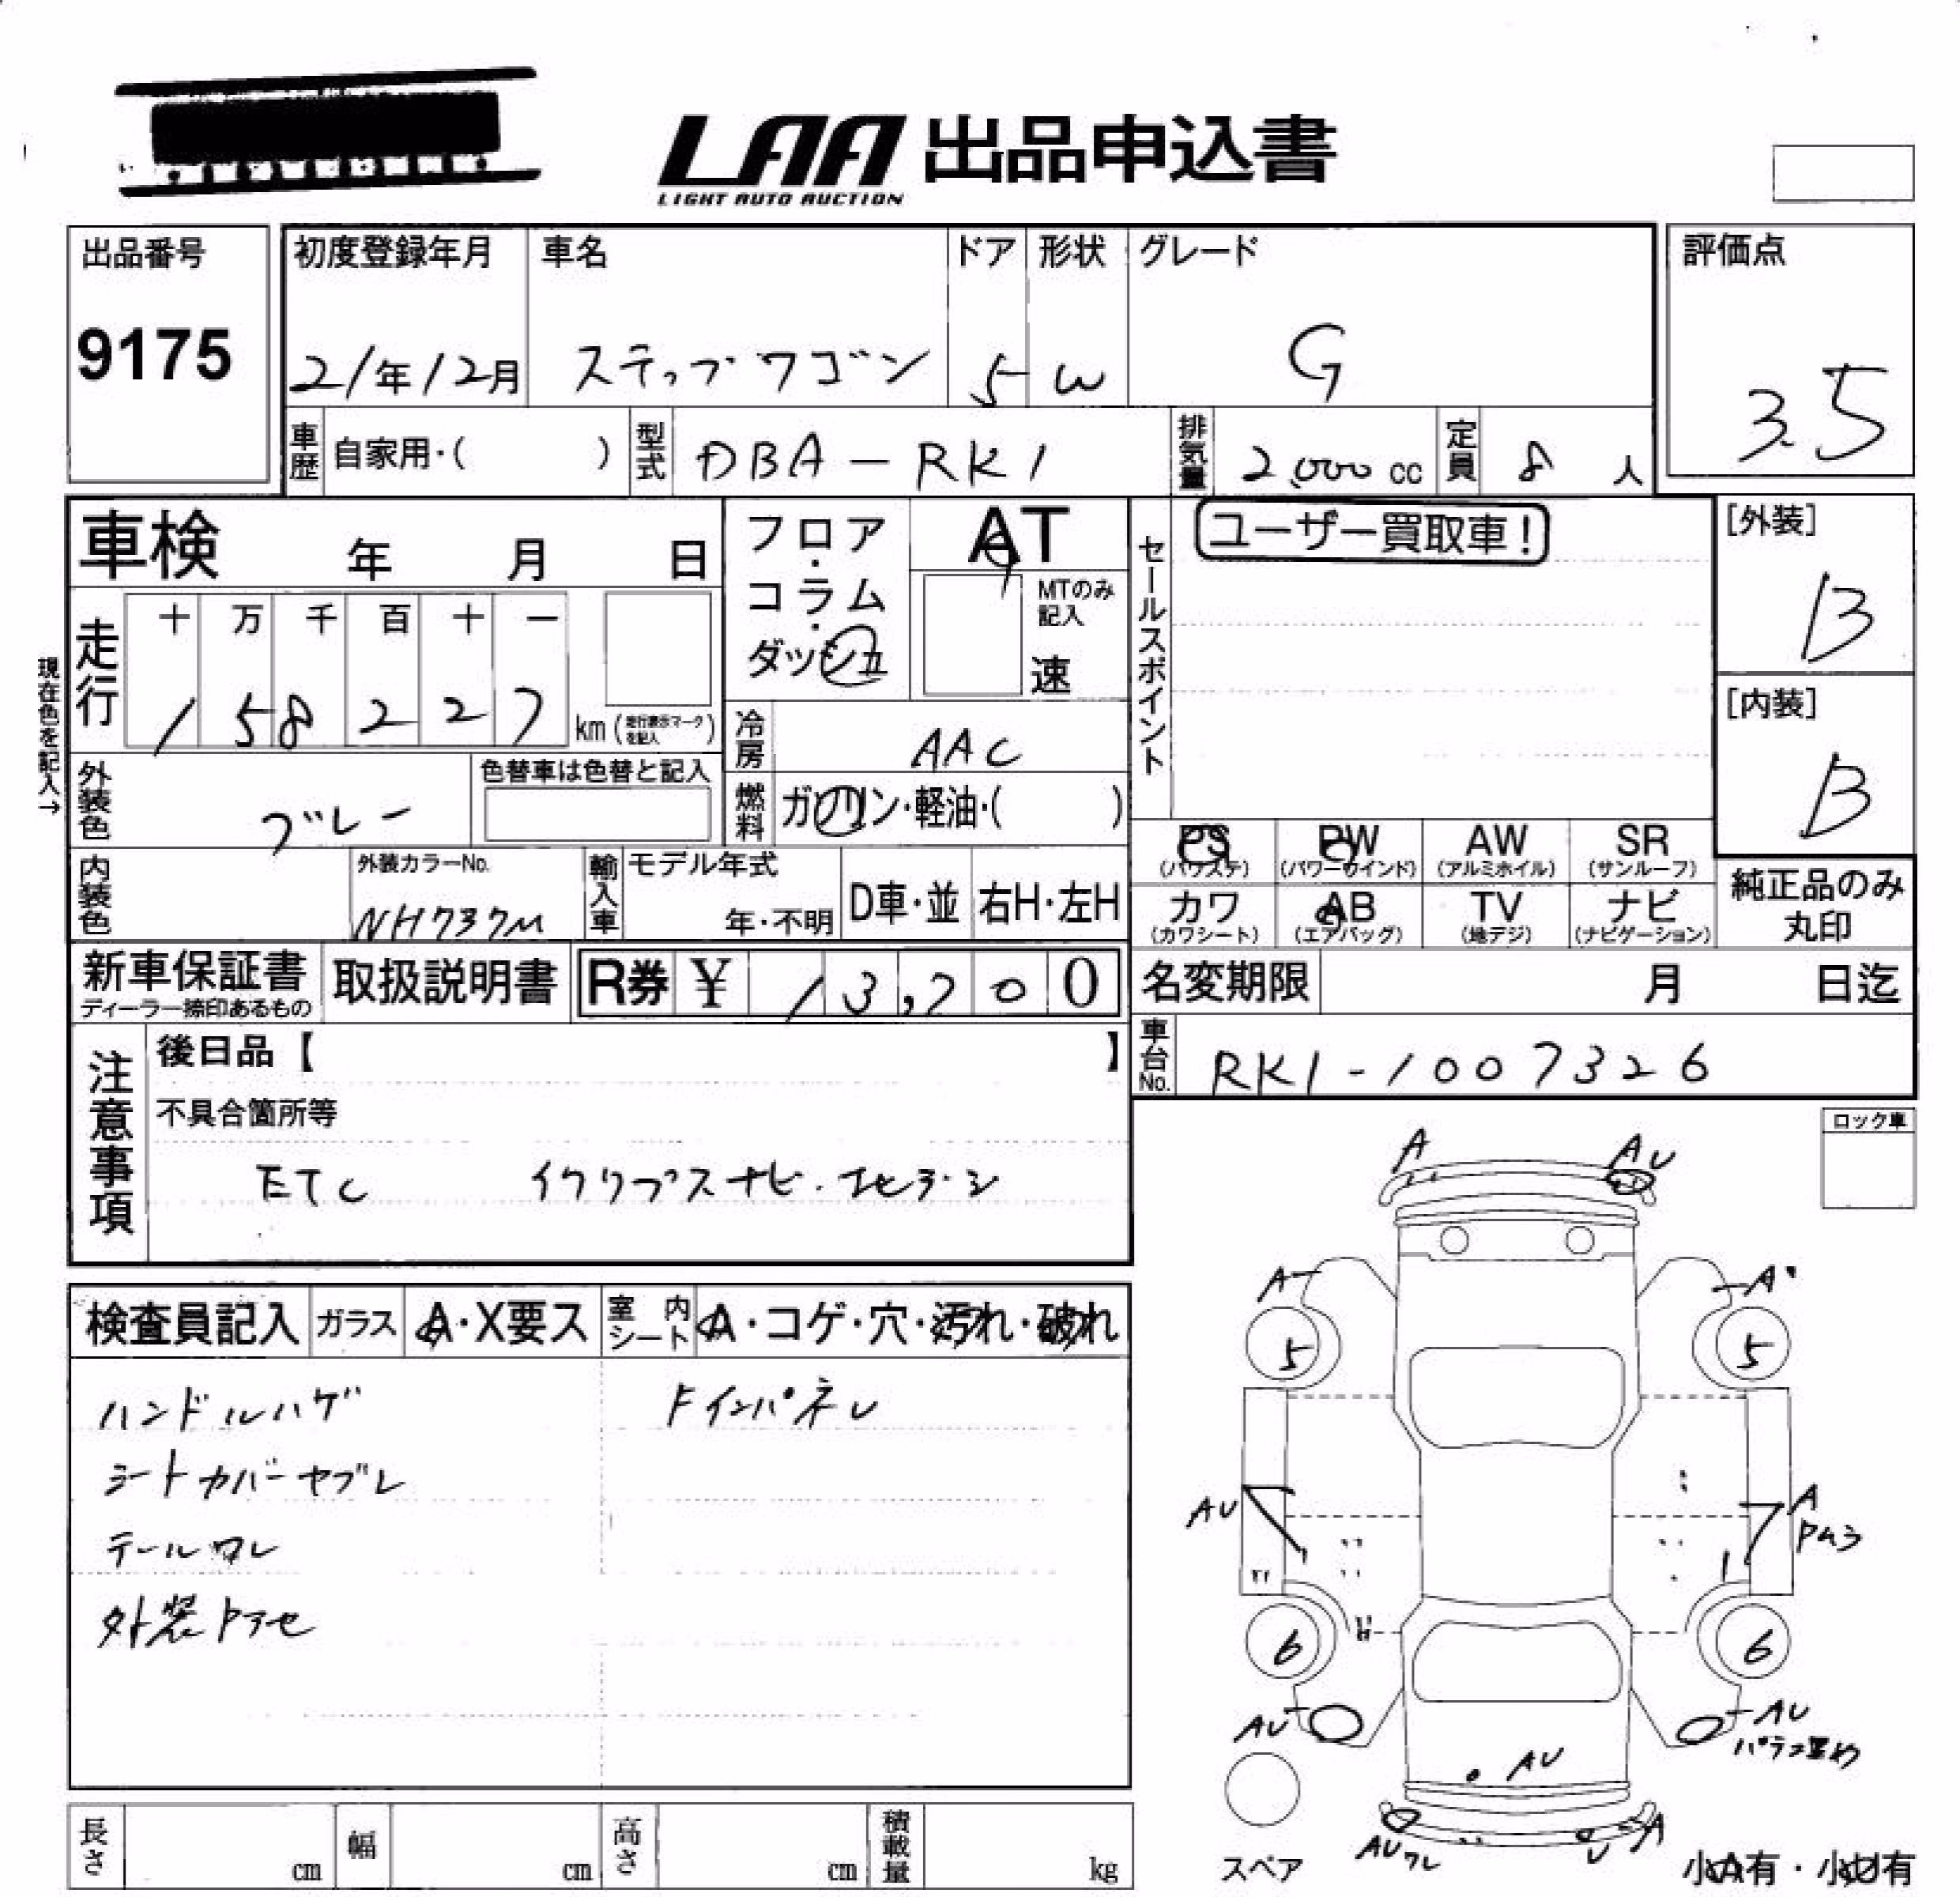 LAA 出品申込書
LIGHT AUTO AUCTION
出品番号
9175
初度登録年月
21年12月
車名
ステップワゴン
ドア
5
形状
W
グレード
G
評価点
3.5
車歴
自家用・( )
型式
DBA-RK1
排気量
2,000 cc
定員
8 人
車検 年 月 日
フロア・コラム・ダッシュ
AT
MTのみ記入
速
セールスポイント
ユーザー買取車!
[外装]
B
[内装]
B
現在色を記入→
走行
十 万 千 百 十 一
1 5 8 2 2 7
km (走行表示マークを記入)
冷房
AAC
外装色
グレー
色替車は色替と記入
燃料
ガソリン・軽油・( )
PS
(パワステ)
PW
(パワーウインド)
AW
(アルミホイル)
SR
(サンルーフ)
カワ
(カワシート)
AB
(エアバッグ)
TV
(地デジ)
ナビ
(ナビゲーション)
純正品のみ
丸印
内装色
外装カラーNo.
NH737M
輸入車
モデル年式
年・不明
D車・並
右H・左H
新車保証書
ディーラー捺印あるもの
取扱説明書
R券 ¥ 13,200
名変期限 月 日迄
車台No.
RK1-1007326
注意事項
後日品【 】
不具合箇所等
ETC イクリプスナビ・
ロック車
検査員記入
ガラス
A・X要ス
室内シート
A・コゲ・穴・汚れ・破れ
ハンドルハゲ
Fインパネレ
シートカバーヤブレ
テールワレ
外装
A
AU
A
A
5
5
AU
A
Pムラ
6
6
AU
AU
AU
AUワレ
U
A
スペア
小A有・小U有
長さ cm
幅 cm
高さ cm
積載量 kg